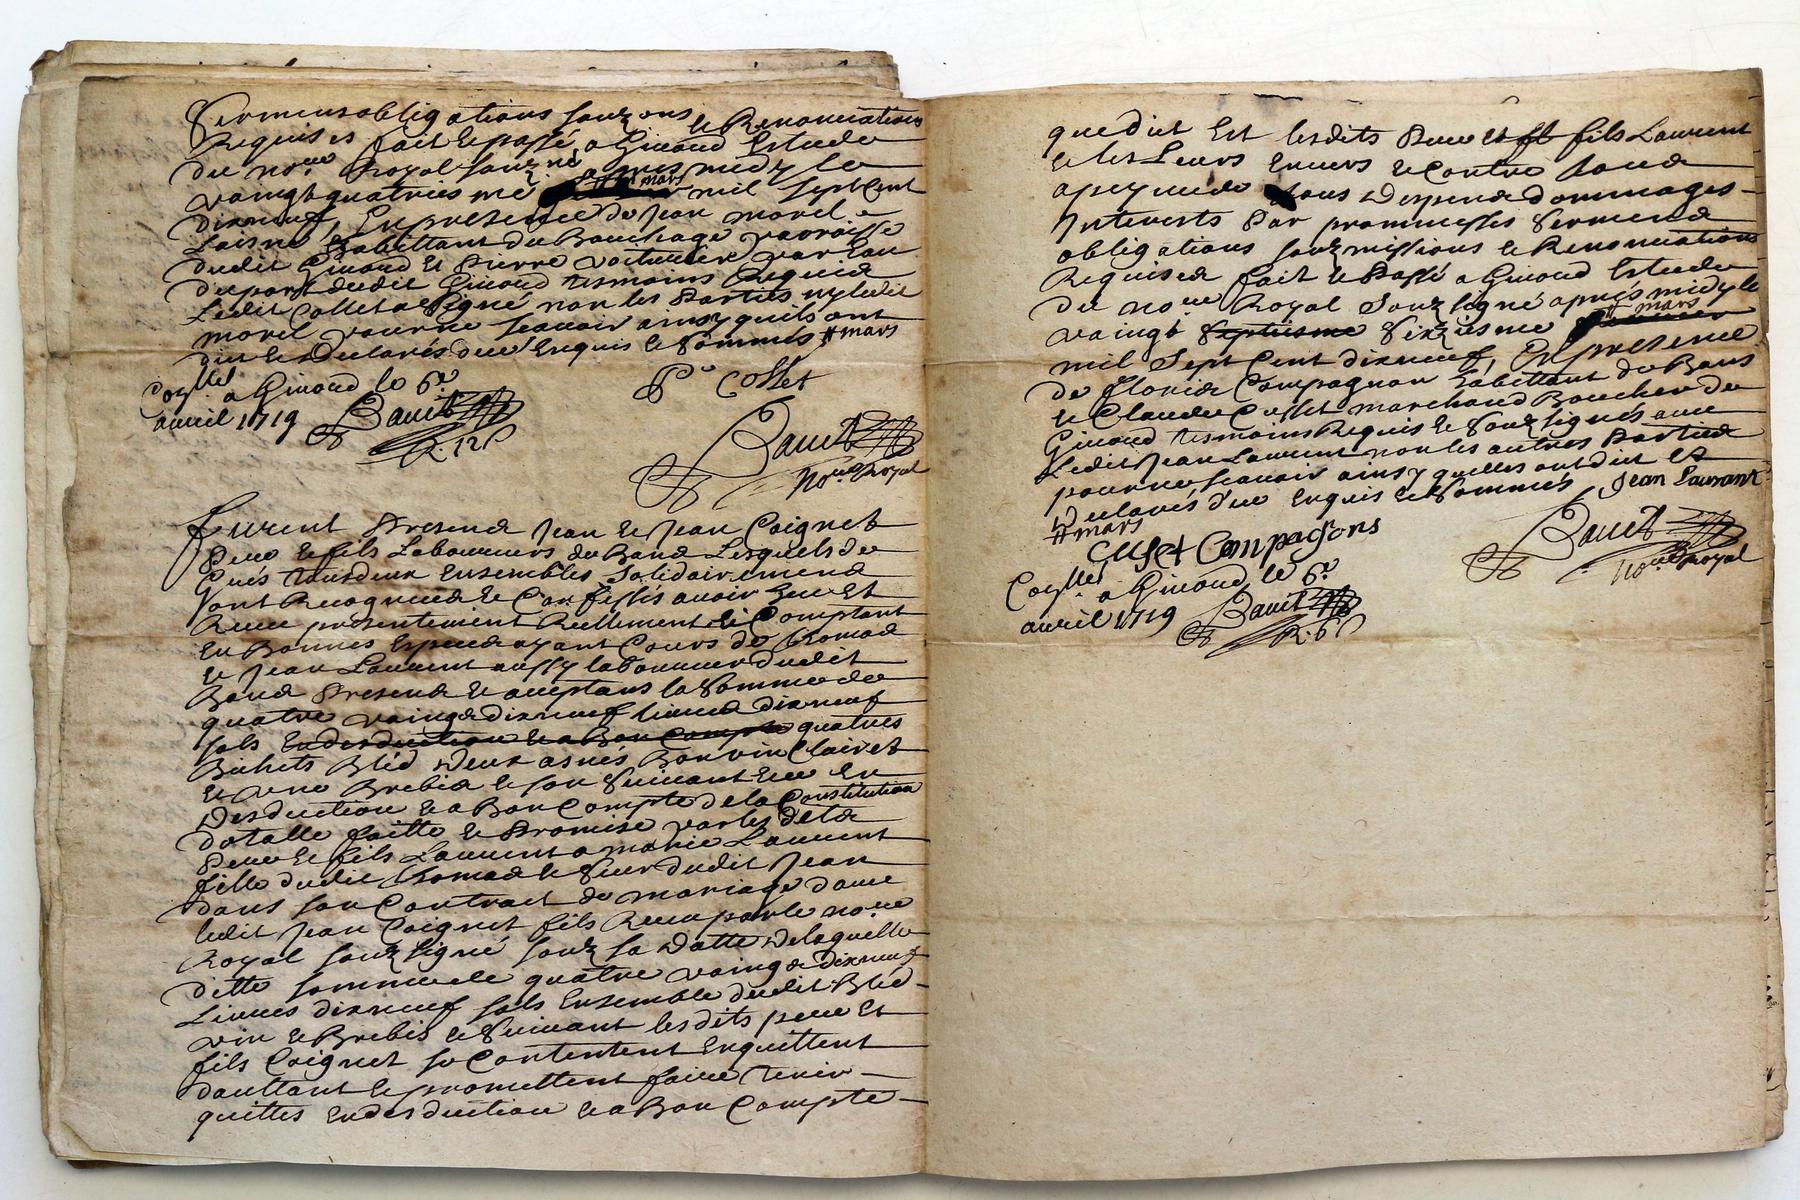 sermens obligations souz ons et Renonciations
Requises fait et passé a Givord Estude
du no.re Royal souz.né apres midy le
vaingt quatries me # mars mil sept cent
dixneuf, En presence de Jean morel
Laisné habittant du Bouchage parroisse
dudit Givord Et Pierre voiturier par Eau
du port dudit Givord tesmoins Requis
Ledit Collet a signé non les Parties ny ledit
morel pour ne scavoir ainsy quils ont
dit et declarés de ce Enquis et Sommés # mars
P Collet
Con.llé a Givord le 6e
avril 1719
no.re Royal
furent Presens Jean et Jean Coignet
Pere et fils Laboureurs du Bans Lesquels de
Grés tous deux Ensembles Solidairemens
sont Recognus et Confessés avoir Heu Et
Receu presentement Reellement et Comptant
En Bonnes Especes ayant Cours de Thomas
et Jean Laurent aussy laboureur dudit
Bans Presens et acceptans la Somme de
quatre vaingt dixneuf livres dixneuf
sols En desduction Et a Bon Compte quatres
Bichets Bled deux asnés Bon vin Clairet
et une Brebis et son suivant Et ce En
desduction et a Bon Compte de la Constitution
dotalle faitte et Promise par les dits
Pere et fils Laurent a marie Laurent
fille dudit Thomas et seur dudit Jean
dans son Contract de mariage avec
ledit Jean Coignet fils Receu par le no.re
Royal souz signé souz sa datte de laquelle
ditte somme de quatre vaingt dixneuf
Livres dixneuf sols Ensemble dudit Bled
vin et Brebis et Suivant lesdits pere Et
fils Coignet se Contentent Enquittent
d'auttant et promettent faire tenir
quittes En desduction et a Bon Compte
que dict Est lesdits Pere Et fl fils Laurent
et les Leurs Envers et Contre tous
a peyne de tous despens dommages
Interests Par prommesses sermens
obligations souzmissions et Renonciations
Requises fait et Passé a Givord Estude
du no.re Royal Souz signé aprés midy le
vaingt septiesme sixziesme # mars
mil Sept Cent dixneuf, En presence
de Floris Compagnon habittant du Bans
et Claude Cusset marchand Boucher de
Givord tesmoins Requis et Souz signés avec
Ledit Jean Laurent non les autres Parties
pour ne scavoir ainsy quelles ont dit Et
declarés d'ce Enquis et Sommés Jean Laurant
# mars
Cusset Compagons
no.re Royal
Con.llé a Givord le 6e
avril 1719